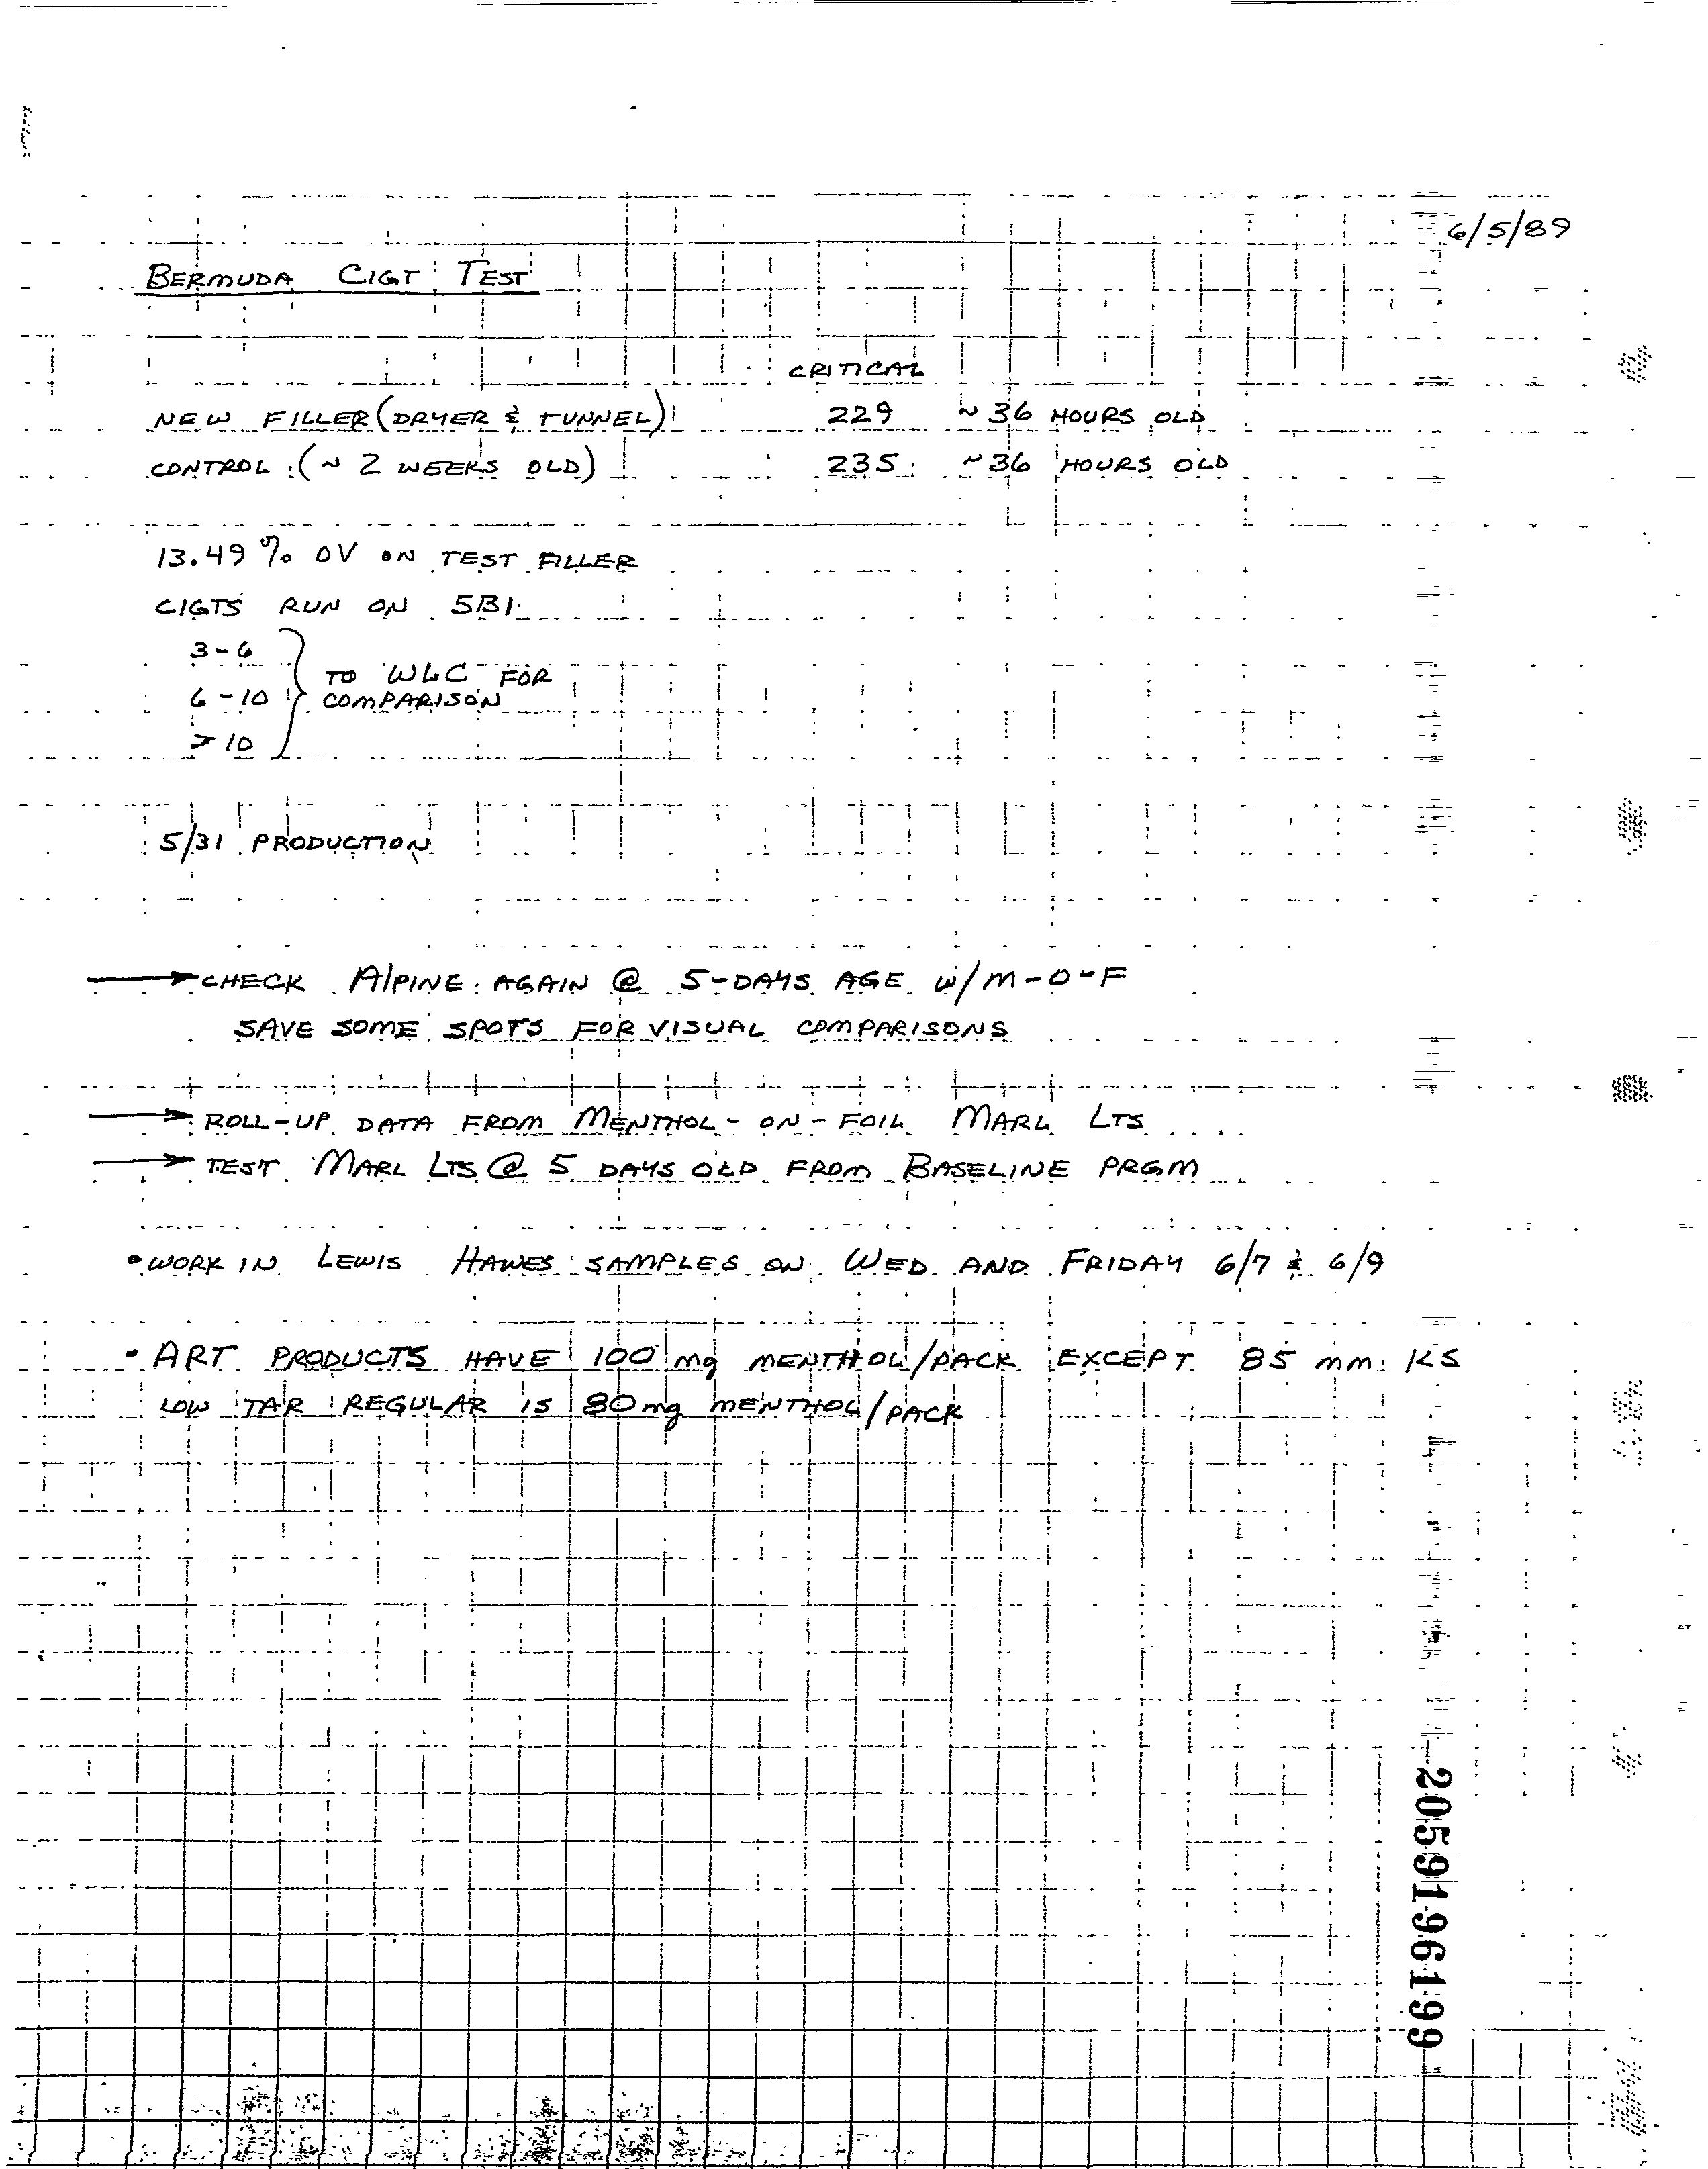 6/5/89
BERMUDA CIGT TEST
CRITICAL
NEW FILLER (DRYER & TUNNEL) 229 ~ 36 HOURS OLD
CONTROL (~ 2 WEEKS OLD) 235 ~36 HOURS OLD
13.49 % OV ON TEST FILLER
CIGTS RUN ON 5B1
3-6
6-10
>10
TO WLC FOR
COMPARISON
5/31 PRODUCTION
→ CHECK AlPINE AGAIN @ 5-DAYS AGE w/ M-O-F
SAVE SOME SPOTS FOR VISUAL COMPARISONS
→ ROLL-UP DATA FROM MENTHOL-ON-FOIL MARL LTS
→ TEST MARL LTS @ 5 DAYS OLD FROM BASELINE PRGM
• WORK IN LEWIS HAWES SAMPLES ON WED AND FRIDAY 6/7 & 6/9
• ART PRODUCTS HAVE 100 mg MENTHOL/PACK EXCEPT 85 mm KS
LOW TAR REGULAR IS 80 mg MENTHOL/PACK
2059196199